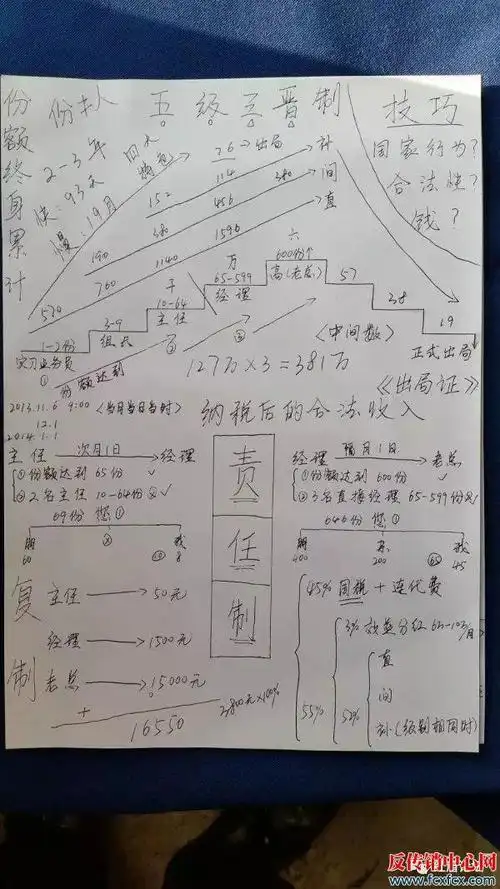 份额终身累计
份 人 五级三晋制 技巧
2-3年
快：93天
慢：19月
国家行为?
合法性?
钱?
76→出局
152 114 380 补
380 456 间
190 1140 1596 直
570 760
1-2份
实习业务员
①
3-9
组长
10-64
主任
65-599
经理
600份个
高(老总)
57
38
19
正式出局
份额达到
②
③
万
六
<中间数>
127万×3=381万
《出局证》
2013.11.6 9:00 <当月当日当时>
12.1
2014.1.1
纳税后的合法收入
主任 次月1日 经理
①份额达到 65份 ✓
②2名主任 10-64份 ✓
69份 您①
60
8
责任制
经理 隔月1日 老总
①份额达到 600份 ✓
②3名直接经理 65-599份 ✓
646份 您①
400 200 45
65
复制
主任→50元
经理→1500元
老总→15000元
+
16550
3800元×100%
45% 国税+连代费
55%
3% 效益分红
52%
直
间
补(级别相同时)
反传销中心网
www.fcxfcx.com